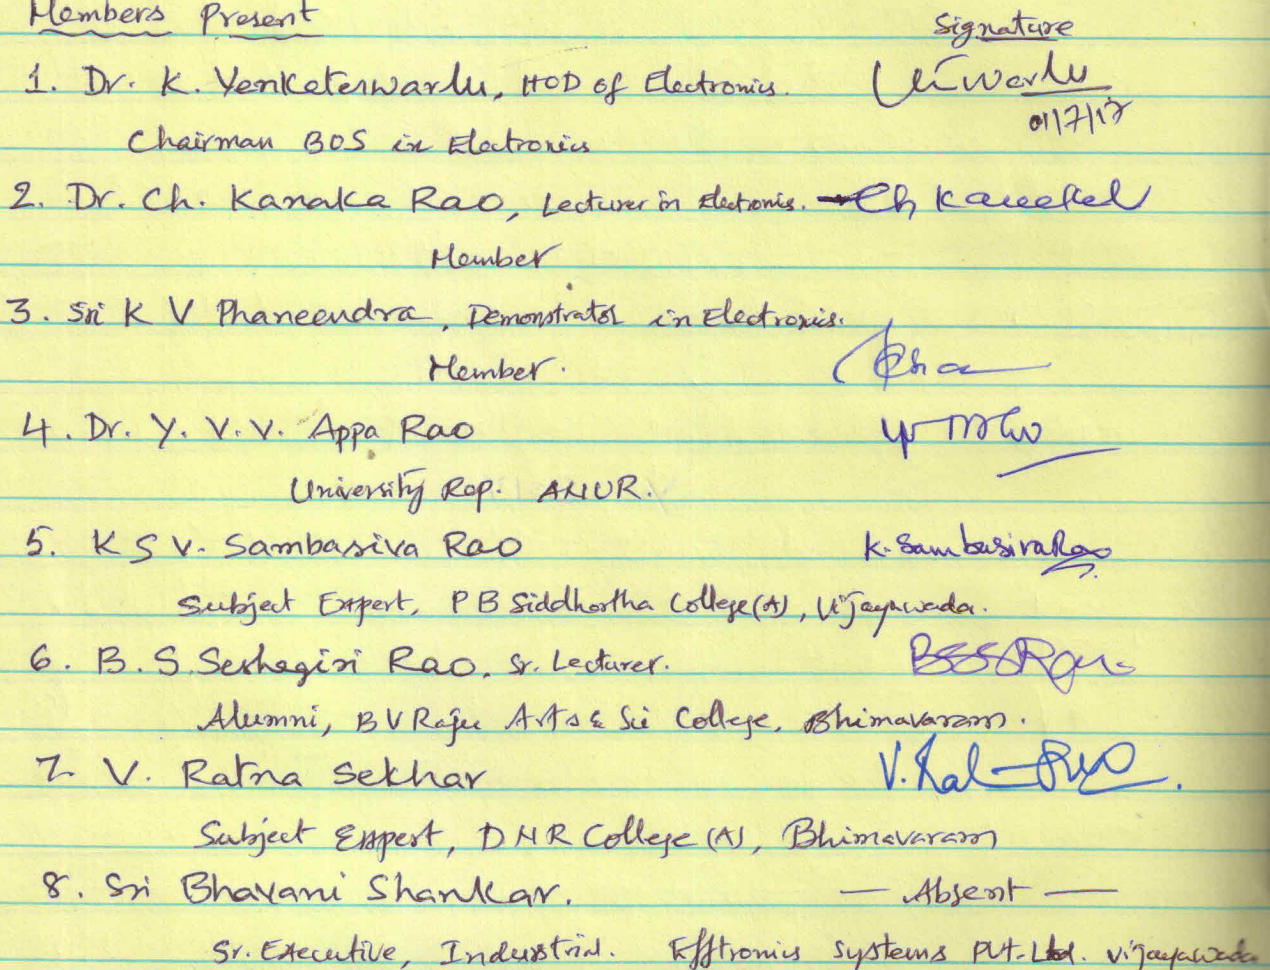 Members Present
Signature
1. Dr. K. Venkateswarlu, HOD of Electronics.
01/7/17
Chairman BOS in Electronics
2. Dr. Ch. Kanaka Rao, Lecturer in Electronics.
Member
3. Sri K V Phaneendra, Demonstrator in Electronics.
Member.
4. Dr. Y. V. V. Appa Rao
University Rep. ANUR.
5. K S V. Sambasiva Rao K. SambasivaRao
Subject Expert, P B Siddhartha College (A), Vijayawada.
6. B. S. Seshagiri Rao, Sr. Lecturer.
Alumni, B V Raju Arts & Sci College, Bhimavaram.
7. V. Ratna Sekhar
Subject Expert, D N R College (A), Bhimavaram
8. Sri Bhavani Shankar. — Absent —
Sr. Executive, Industrial. Efftronics Systems PVT. Ltd. Vijayawada